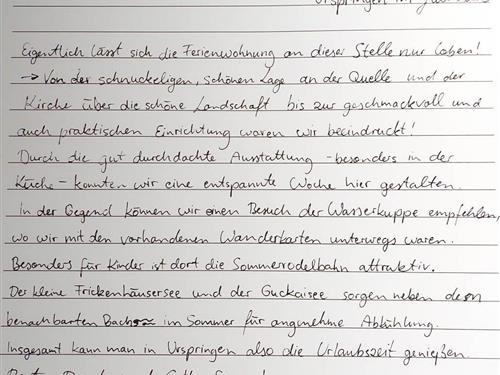 Urspringen im
Eigentlich lässt sich die Ferienwohnung an dieser Stelle nur loben!
→ Von der schnuckeligen, schönen Lage an der Quelle und der
Kirche über die schöne Landschaft bis zur geschmackvoll und
auch praktischen Einrichtung waren wir beeindruckt!
Durch die gut durchdachte Ausstattung - besonders in der
Küche - konnten wir eine entspannte Woche hier gestalten.
In der Gegend können wir einen Besuch der Wasserkuppe empfehlen,
wo wir mit den vorhandenen Wanderkarten unterwegs waren.
Besonders für Kinder ist dort die Sommerrodelbahn attraktiv.
Der kleine Frickenhäusersee und der Guckaisee sorgen neben den
benachbarten Bach im Sommer für angenehme Abkühlung.
Insgesamt kann man in Urspringen also die Urlaubszeit genießen.